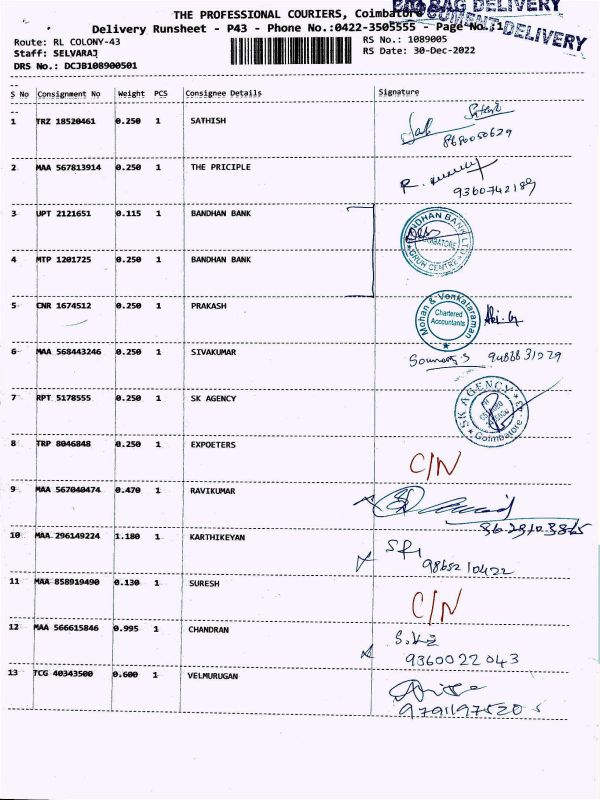 BAG BAG DELIVERY
DOCUMENT DELIVERY
THE PROFESSIONAL COURIERS, Coimbatore
Delivery Runsheet - P43 - Phone No.:0422-3505555 - Page No.:1
Route: RL COLONY-43
RS No.: 1089005
Staff: SELVARAJ
RS Date: 30-Dec-2022
DRS No.: DCJB108900501
S No Consignment No Weight PCS Consignee Details Signature
1 TRZ 18520461 0.250 1 SATHISH
8680050629
2 MAA 567813914 0.250 1 THE PRICIPLE
9360742189
3 UPT 2121651 0.115 1 BANDHAN BANK
BANDHAN BANK LTD
COIMBATORE
GRUH CENTRE
4 MTP 1201725 0.250 1 BANDHAN BANK
5 CNR 1674512 0.250 1 PRAKASH
Mohan & Venkataraman
Chartered
Accountants
6 MAA 568443246 0.250 1 SIVAKUMAR
7 RPT 5178555 0.250 1 SK AGENCY
SK AGENCY
Coimbatore
8 TRP 8046848 0.250 1 EXPOETERS C/N
9 MAA 567040474 0.470 1 RAVIKUMAR
10 MAA 296149224 1.180 1 KARTHIKEYAN
9865210422
11 MAA 858919490 0.130 1 SURESH C/N
12 MAA 566615846 0.995 1 CHANDRAN
9360022043
13 TCG 40343500 0.600 1 VELMURUGAN